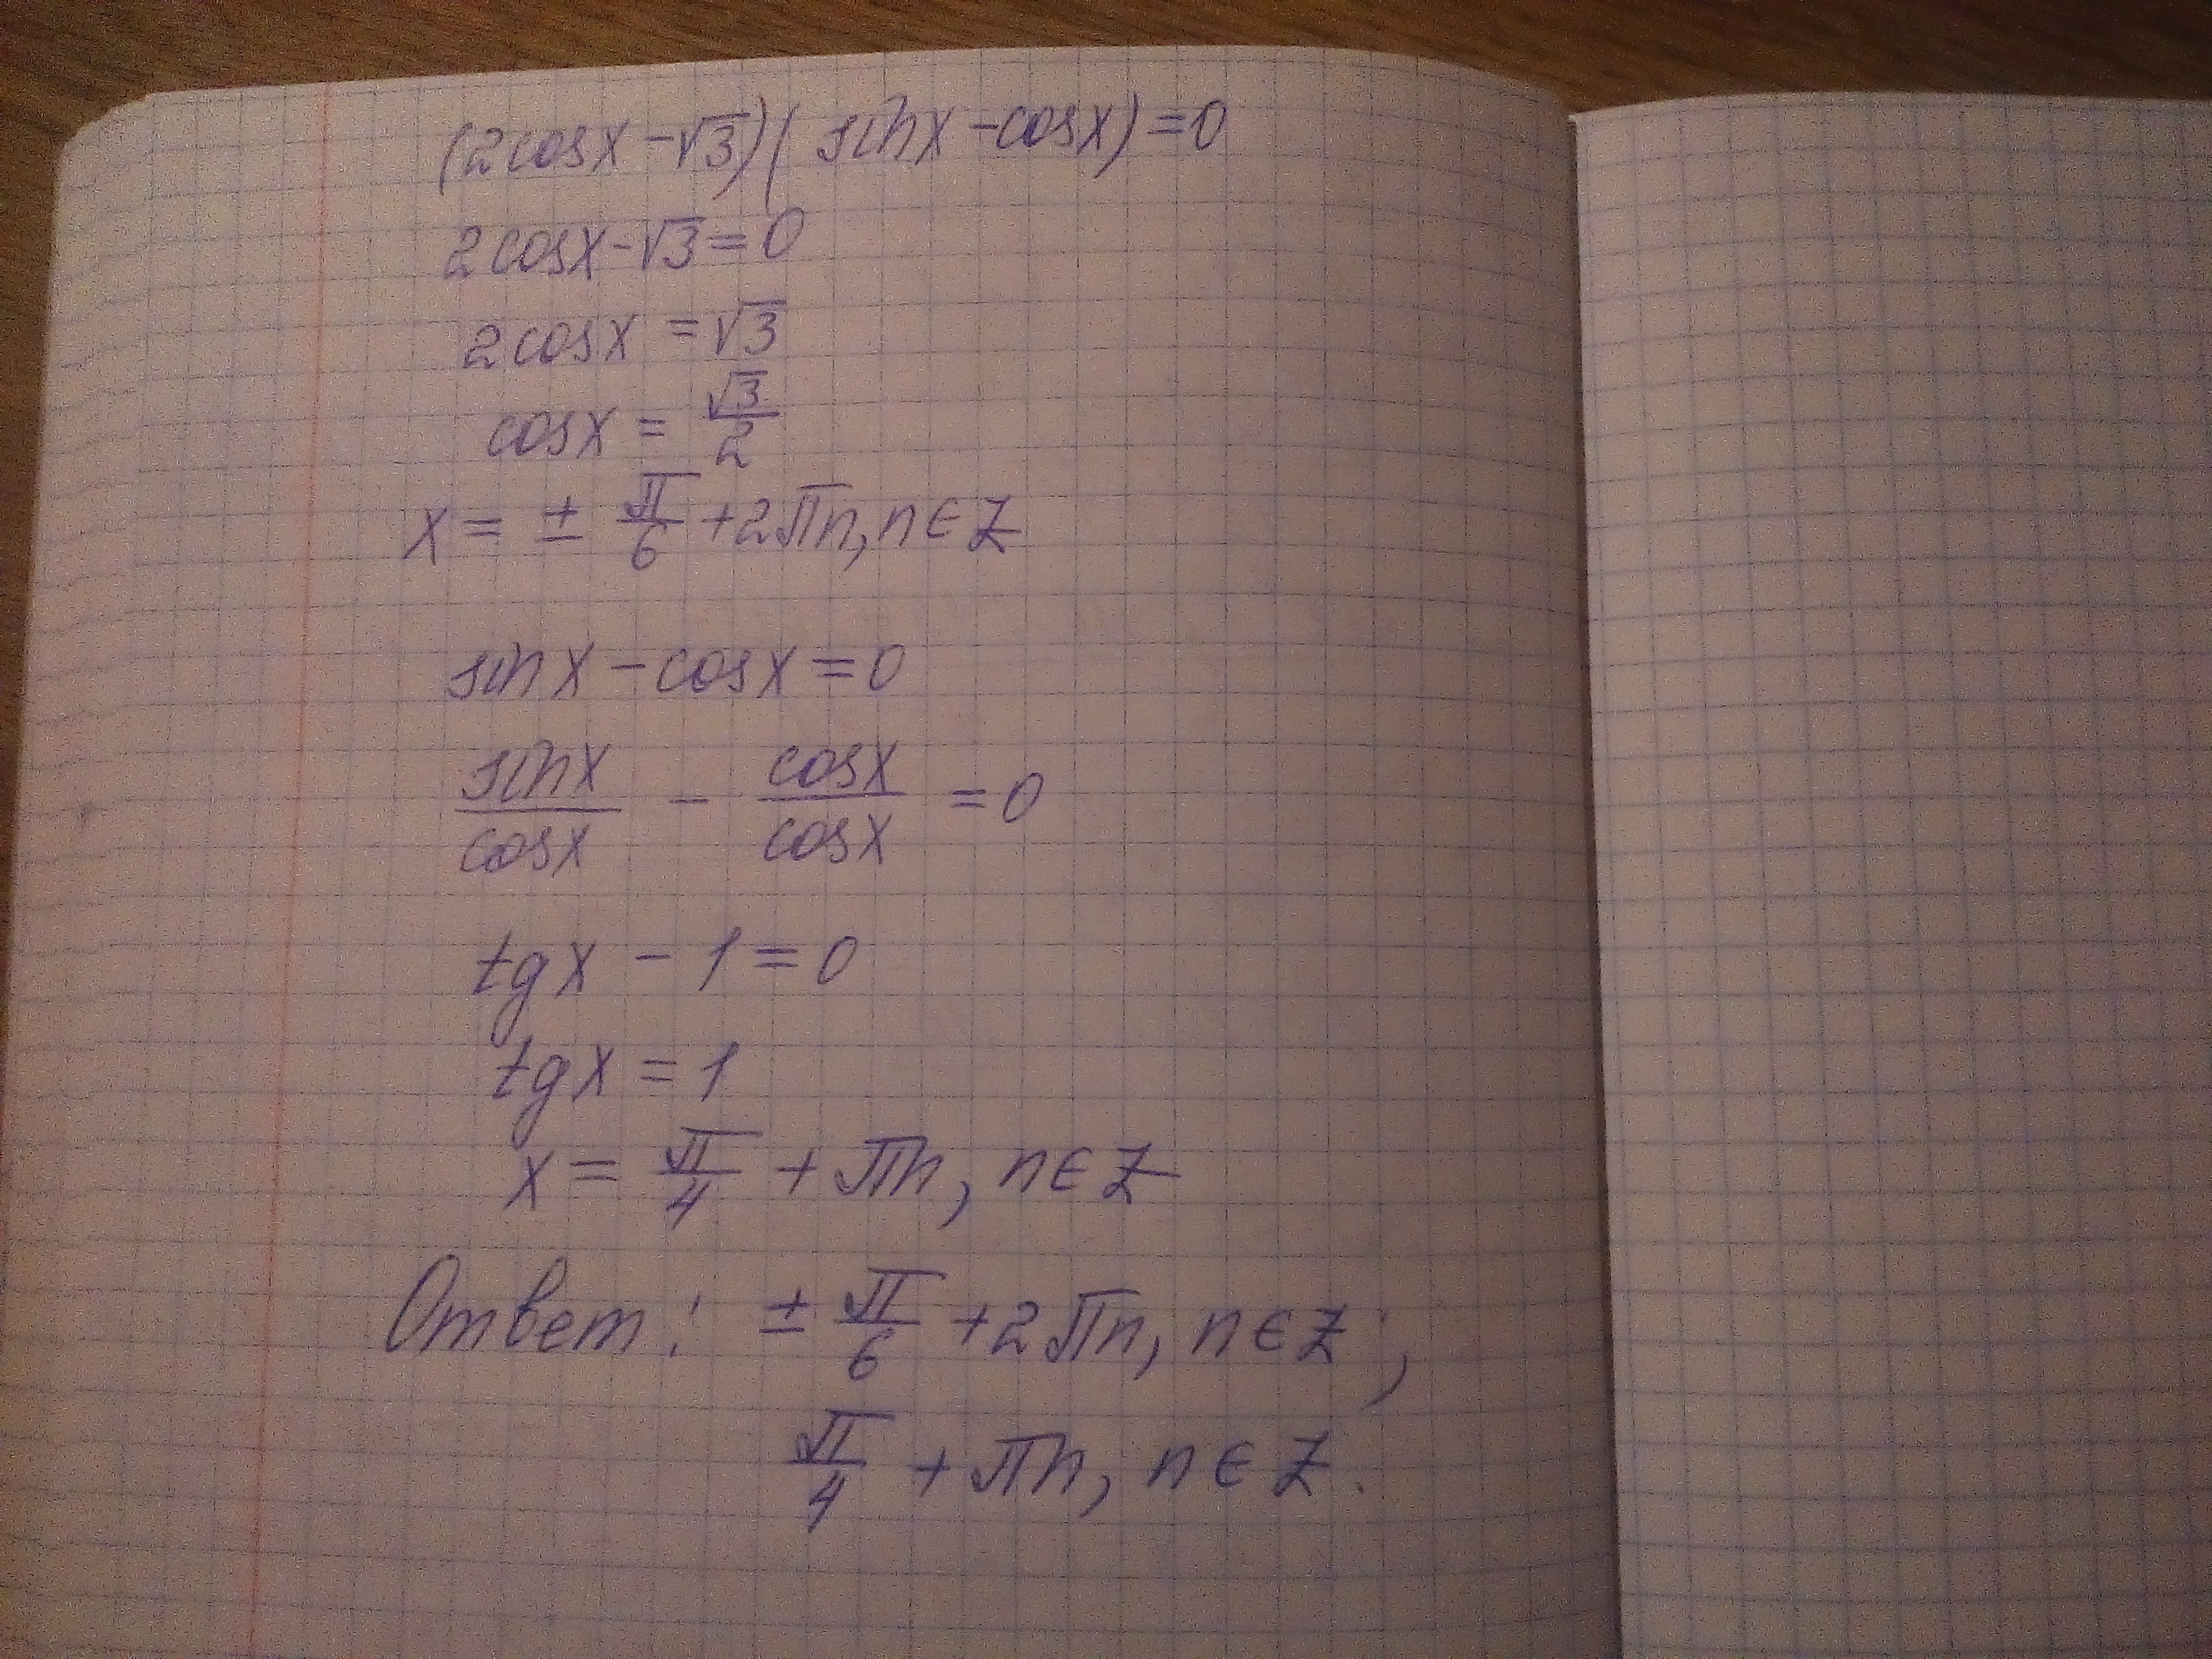 (2cosx - √3)(sinx - cosx) = 0
2cosx - √3 = 0
2cosx = √3
cosx = √3/2
x = ± π/6 + 2πn, n ∈ Z
sinx - cosx = 0
sinx/cosx - cosx/cosx = 0
tgx - 1 = 0
tgx = 1
x = π/4 + πn, n ∈ Z
Ответ: ± π/6 + 2πn, n ∈ Z;
π/4 + πn, n ∈ Z.